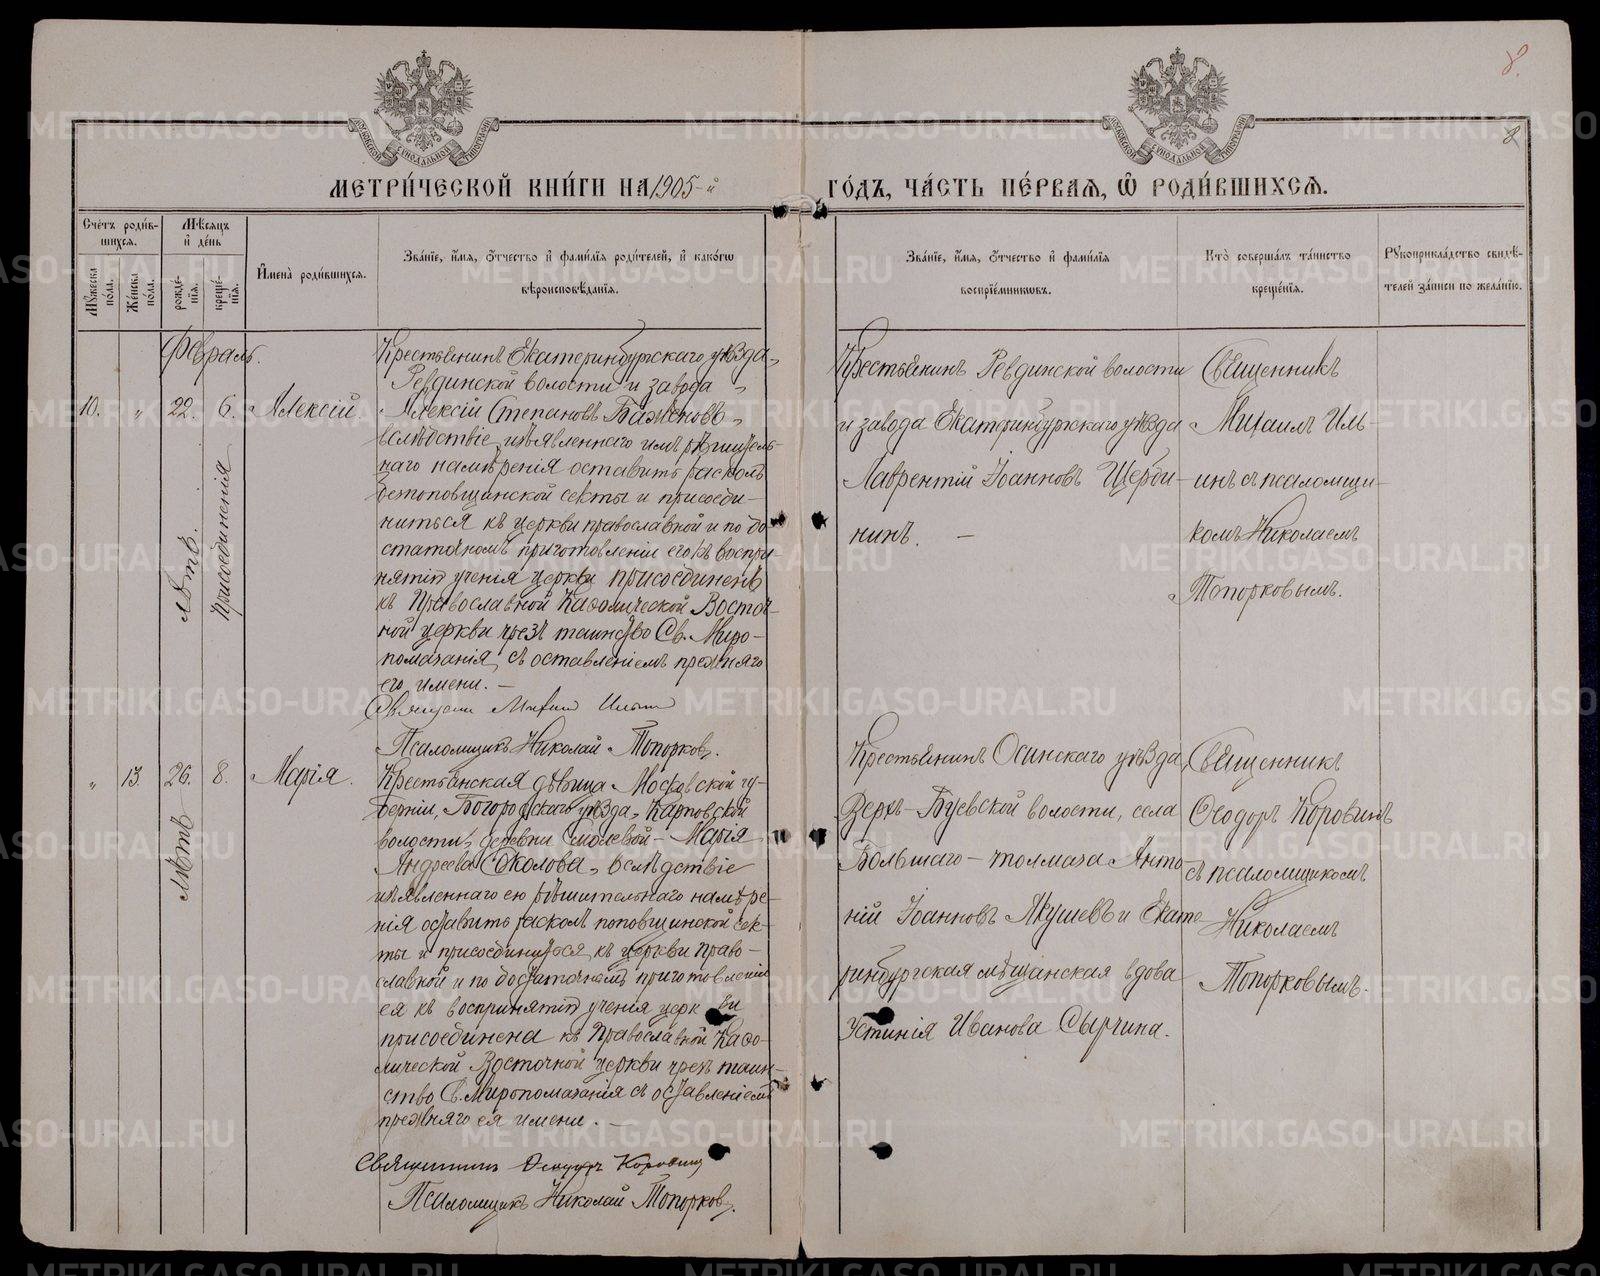 8.
МОСКОВСКОЙ СѴНОДАЛЬНОЙ ТИПОГРАФІИ
МОСКОВСКОЙ СѴНОДАЛЬНОЙ ТИПОГРАФІИ
МЕТРИ́ЧЕСКОЙ КНИ́ГИ НА 1905-й
ГО́ДЪ, ЧА́СТЬ ПЕ́РВАЯ, Ѽ РОДИ́ВШИХСѦ.
Сче́тъ роди́в-
шихсѧ.
Мꙋжеска по́ла.
Же́нска по́ла.
Мѣ́сѧцъ
и҆ де́нь
рожде́-
нїѧ.
креще́-
нїѧ.
И҆мена̀ роди́вшихсѧ.
Зва́нїе, и҆́мѧ, ѻ҆́тчество и҆ фами́лїѧ роди́телей, и҆ како́гѡ
вѣроисповѣ́данїѧ.
Зва́нїе, и҆́мѧ, ѻ҆́тчество и҆ фами́лїѧ
воспрїе́мникѡвъ.
Кто̀ соверша́лъ та́инство
креще́нїѧ.
Рꙋкоприкла́дство свидѣ́-
телей за́писи по жела́нїю.
Февраль.
10.
"
22.
лѣтъ.
6.
присоединенія
Алексій.
Крестьянинъ Екатеринбургскаго уѣзда,
Ревдинской волости и завода
Алексій Степановъ Баженовъ,
вслѣдствіе изъявленнаго имъ рѣшитель-
наго намѣренія оставить расколъ
безпоповщинской секты и присоеди-
ниться къ церкви православной и по до-
статочномъ приготовленіи его къ воспри-
нятію ученія церкви присоединенъ
къ Православной Каѳолической Восточ-
ной церкви чрезъ таинство Св. Миро-
помазанія, съ оставленіемъ прежняго
его имени. —
Священникъ Михаилъ Ильинъ
Псаломщикъ Николай Топорковъ.
Крестьянинъ Ревдинской волости
и завода Екатеринбургскаго уѣзда
Лаврентій Іоанновъ Щерби-
нинъ. —
Священникъ
Михаилъ Иль-
инъ съ псаломщи-
комъ Николаемъ
Топорковымъ.
"
13.
26.
лѣтъ
8.
Марія.
Крестьянская дѣвица Московской гу-
берніи, Богородскаго уѣзда, Карповской
волости, деревни Смолевой — Марія
Андреева Соколова, вслѣдствіе
изъявленнаго ею рѣшительнаго намѣре-
нія оставить расколъ поповщинской сек-
ты и присоединиться къ церкви право-
славной и по достаточномъ приготовленіи
ея къ воспринятію ученія церкви
присоединена къ Православной Каѳо-
лической Восточной церкви чрезъ таин-
ство Св. Миропомазанія съ оставленіемъ
прежняго ея имени. —
Священникъ Ѳеодоръ Коровинъ
Псаломщикъ Николай Топорковъ.
Крестьянинъ Осинскаго уѣзда,
Верхъ-Буевской волости, села
Большаго-толмача Анто-
ній Іоанновъ Якушевъ и Екате-
ринбургская мѣщанская вдова
Устинія Иванова Сырчина.
Священникъ
Ѳеодоръ Коровинъ
съ псаломщикомъ
Николаемъ
Топорковымъ.
METRIKI.GASO-URAL.RU